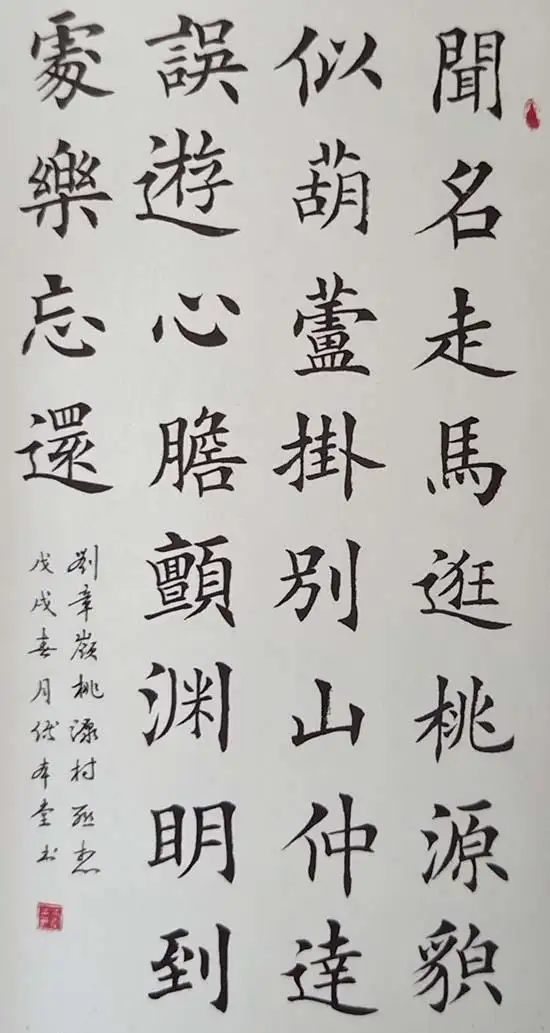 聞名走馬逛桃源貌
似葫蘆掛别山仲達
誤遊心膽顫渊明到
處樂忘還
劉章嶺桃源村
戊戌春月 本堂书